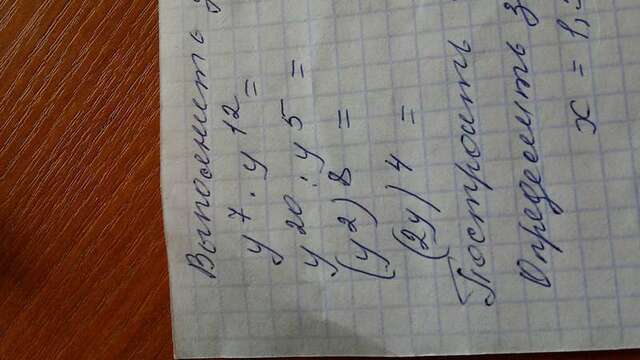 Выполнить
y⁷ · y¹² =
y²⁰ : y⁵ =
(y²)⁸ =
(2y)⁴ =
Построить
Определить
x = 1,